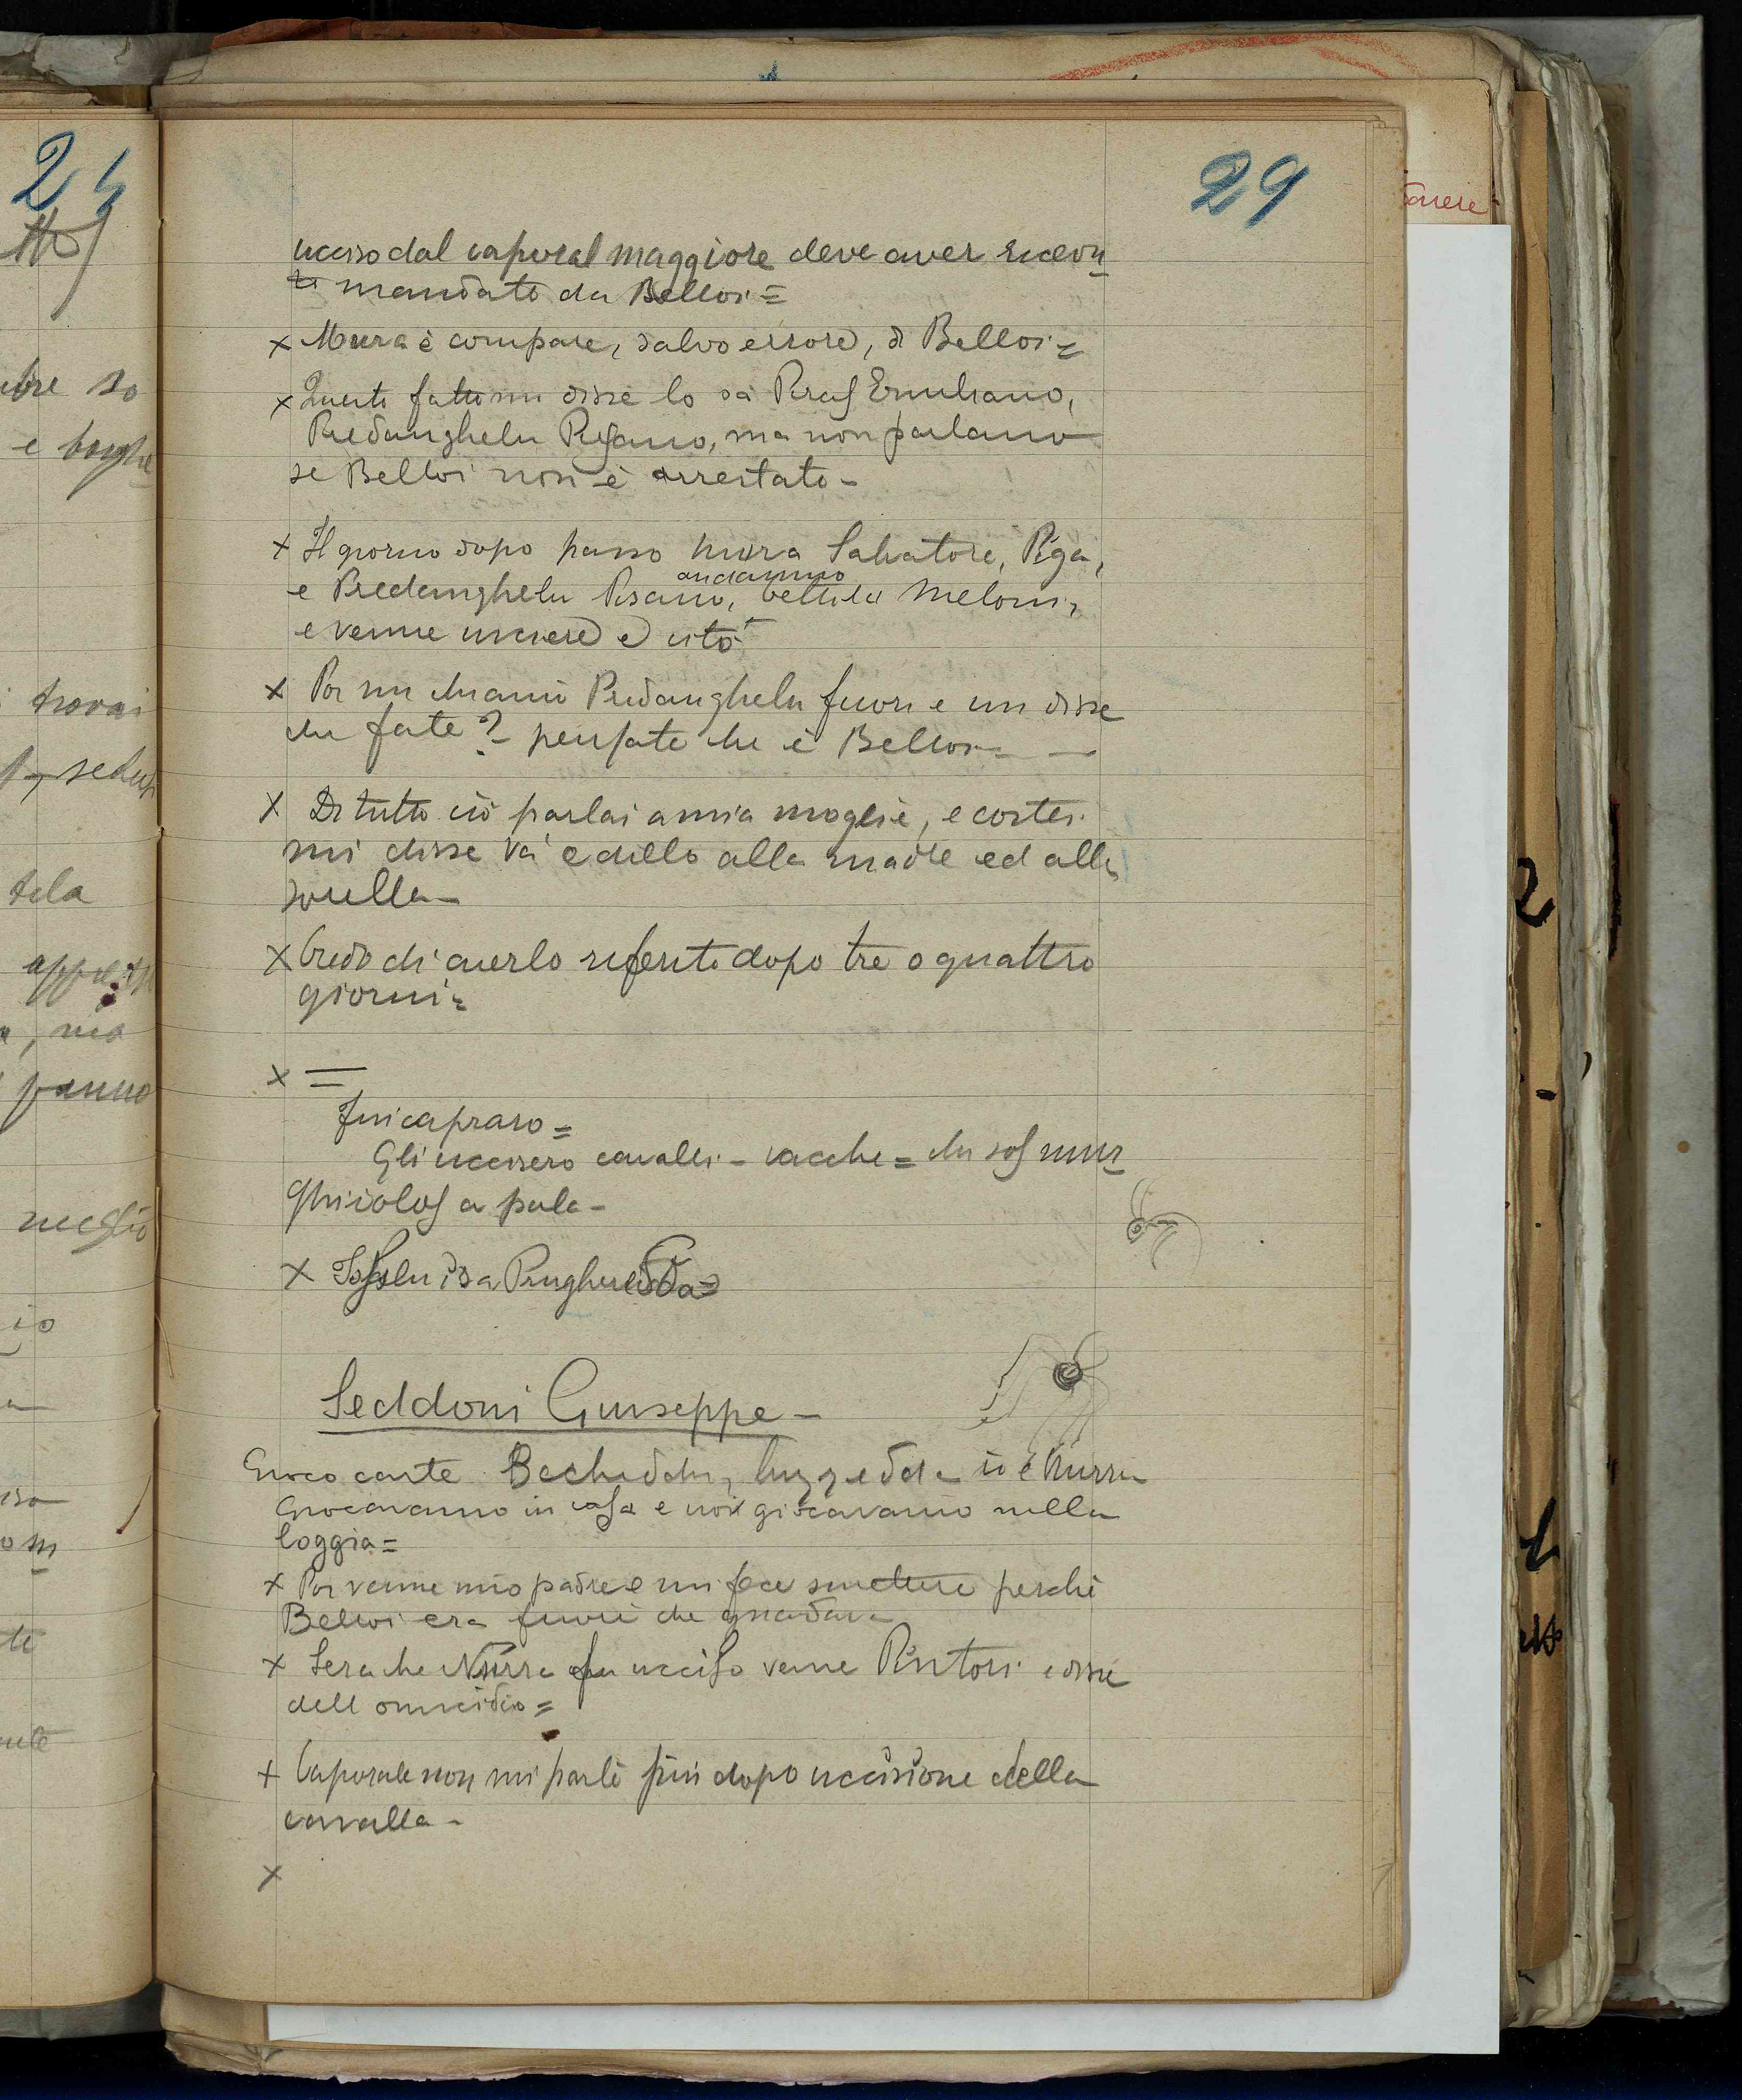 29
ucciso dal caporal maggiore deve aver ricevu
to mandato da Belloi =
x Mura è compare, salvo errore, di Belloi =
x Questo fatto mi disse lo sa Piras Emiliano,
Predanghelu Pisano, ma non parlano
se Belloi non è arrestato -
x Il giorno dopo passo Mura Salvatore, Piga,
andammo
e Predanghelu Pisano, bettola Meloni,
e venne usciere e citò
x Poi mi chiamò Predanghelu fuori e mi disse
che fate? - pensate che è Belloi -
x Di tutto ciò parlai a mia moglie, e costei
mi disse va' e dillo alla madre ed alla
sorella -
x Credo di averlo riferito dopo tre o quattro
giorni =
x =
Fui capraro =
Gli uccisero cavalli - vacche = chi sos
a pala -
x
Seddoni Giuseppe -
Gioco carte Bachiddu, io e Nurra
Giocavamo in casa e noi giocavamo nella
loggia =
x Poi venne mio padre e mi fece smettere perchè
Belloi era fuori che guardava
x Sera che Nurra fu ucciso venne Pintori e disse
dell omicidio =
x Caporale non mi parlò più dopo uccisione della
cavalla -
x
24
trovai
tela
meglio